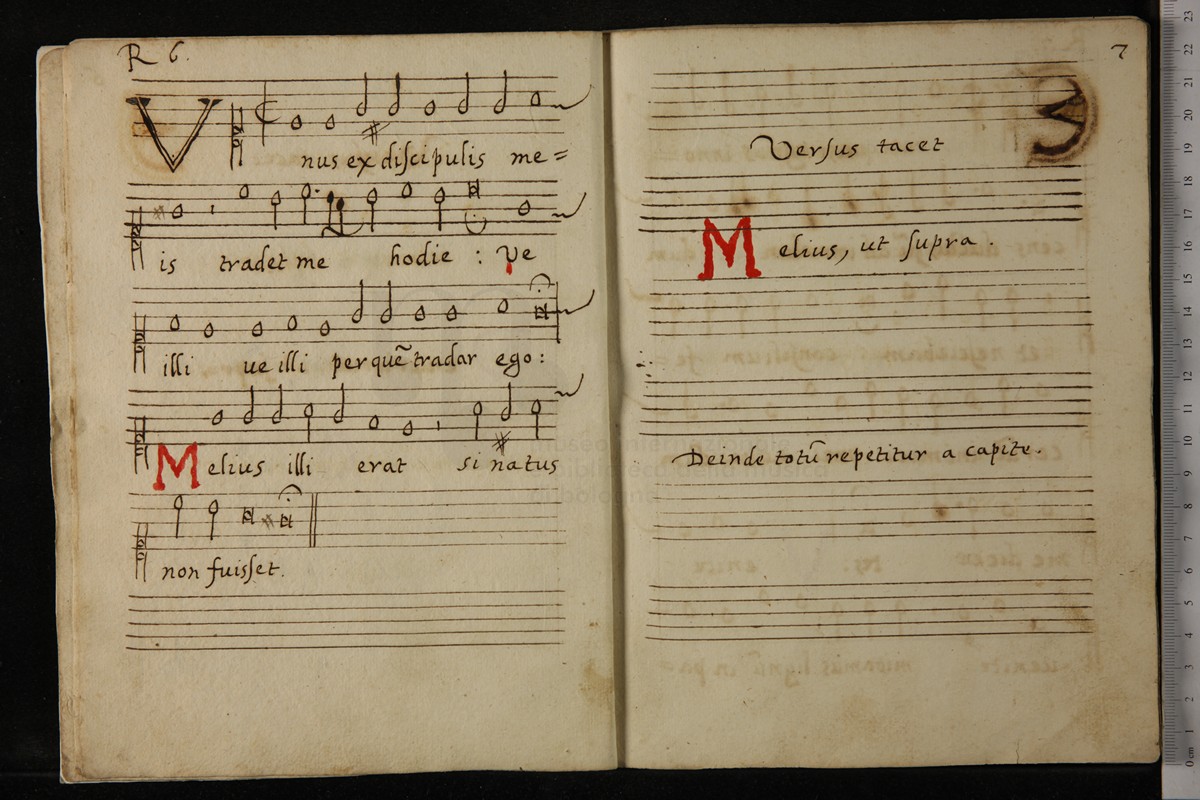 R 6.
Vnus ex discipulis me=
is tradet me hodie : Ve
illi ue illi per quẽ tradar ego :
Melius illi erat si natus
non fuisset.
7
Versus tacet
Melius, ut supra .
Deinde totũ repetitur a capite.
museo internazionale
e biblioteca della musica
di bologna
23
22
21
20
19
18
17
16
15
14
13
12
11
10
9
8
7
6
5
4
3
2
1
0 cm